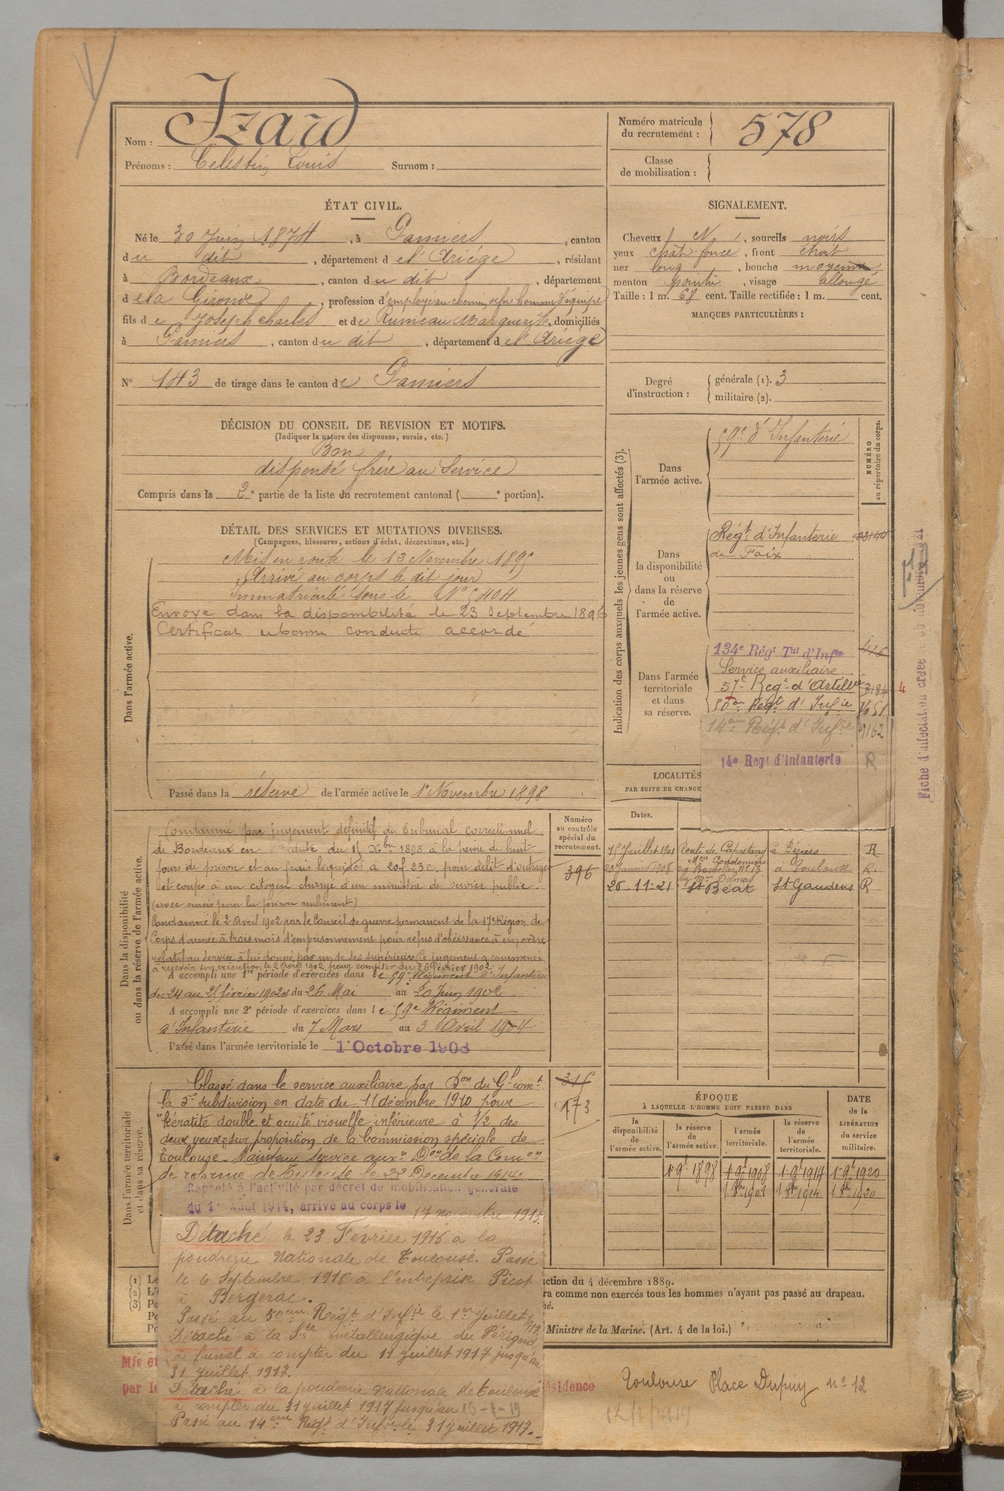 Nom : Izard
Prénoms : Célestin Louis Surnom :
Numéro matricule
du recrutement : 578
Classe
de mobilisation :
ÉTAT CIVIL.
Né le 30 Juin 1874, à Pamiers, canton
du dit, département de l'Ariège, résidant
à Bordeaux, canton du dit, département
de la Gironde, profession d'employé au chemin de fer homme d'équipe
fils de Joseph Charles et de Rumeau Marguerite, domiciliés
à Pamiers, canton du dit, département de l'Ariège
N° 143 de tirage dans le canton de Pamiers
SIGNALEMENT.
Cheveux N., sourcils noirs
yeux chât. foncé, front étroit
nez long, bouche moyenne
menton pointu, visage allongé
Taille : 1 m. 68 cent. Taille rectifiée : 1 m. cent.
MARQUES PARTICULIÈRES :
Degré
d'instruction :
générale (1). 3
militaire (2).
DÉCISION DU CONSEIL DE REVISION ET MOTIFS.
(Indiquer la nature des dispenses, sursis, etc.)
Bon
dispensé frère au Service
Compris dans la 2e partie de la liste du recrutement cantonal ( e portion).
DÉTAIL DES SERVICES ET MUTATIONS DIVERSES.
(Campagnes, blessures, actions d'éclat, décorations, etc.)
Dans l'armée active.
Mis en route le 13 Novembre 1895
Arrivé au corps le dit jour
Immatriculé sous le N°
Envoyé dans la disponibilité le 23 Septembre 1896
Certificat de bonne conduite accordé
Passé dans la réserve de l'armée active le 1er Novembre 1898
Indication des corps auxquels les jeunes gens sont affectés (3).
NUMÉRO
au répertoire du corps.
Dans
l'armée active.
59e d'Infanterie
Dans
la disponibilité
ou
dans la réserve
de
l'armée active.
Régt d'Infanterie
de Foix
Dans l'armée
territoriale
et dans
sa réserve.
134e Régt Tal d'Infie
Service auxiliaire
57e Régt d'Artillie 3184
50ème Régt d'Infie
14ème Régt d'Infie 9162
14e Régt d'Infanterie R
LOCALITÉS
PAR SUITE DE CHANGE
Dates.
à Béziers R
à Toulouse R
26-11-21 St Béat St Gaudens R
Dans la disponibilité
ou dans la réserve de l'armée active.
Numéro
au contrôle
spécial du
recrutement.
396
Condamné par jugement définitif du tribunal correctionnel
de Bordeaux en date du Xbre 1898 à la peine de huit
jours de prison et au frais liquidés à 20f 23c pour délit d'outrages
et coups à un citoyen chargé d'un ministère de service public.
(avec sursis pour la prison seulement)
Condamné le 2 Avril 1902 par le Conseil de guerre permanent de la 17e Région de
Corps d'armée à trois mois d'emprisonnement pour refus d'obéissance à un ordre
relatif au service à lui donné par un de ses supérieurs. Ce jugement a commencé
à recevoir son exécution le 2 Avril 1902 pour compter du 26 février 1902
A accompli une 1re période d'exercices dans le 59e Régiment d'Infanterie
du 24 au 25 février 1902 et du 26 Mai au 20 Juin 1902.
A accompli une 2e période d'exercices dans le 59e Régiment
d'Infanterie du 7 Mars au 3 Avril 1904
Passé dans l'armée territoriale le 1 Octobre 1908
Dans l'armée territoriale
et dans sa réserve.
Classé dans le service auxiliaire par Don du Gl comt
la 5e subdivision en date du 11 décembre 1910 pour
"kératite double et acuité visuelle inférieure à 1/2 des
deux yeux" sur proposition de la Commission spéciale de
Toulouse. Maintenu service auxre Don de la Comon
de réforme de Toulouse le 22 Décembre 1914.
Rappelé à l'activité par décret de mobilisation générale
du 1er Août 1914, arrivé au corps le 17 novembre 1915.
Détaché le 23 Février 1915 à la
poudrerie Nationale de Toulouse. Passé
le 6 Septembre 1915 à l'entreprise Picot
à Bergerac.
Passé au 50ème Régt d'Infie le 1er Juillet 1917
Détaché à la Sté Métallurgique du Périgord
à compter du 11 Juillet 1917 jusqu'au
31 juillet 1917.
Détaché à la poudrerie Nationale de Toulouse
à compter du 31 juillet 1917 jusqu'au
Passé au 14ème Régt d'Infie le 31 juillet 1917.
ÉPOQUE
À LAQUELLE L'HOMME DOIT PASSER DANS
la
disponibilité
de
l'armée active.
la réserve
de
l'armée active.
l'armée
territoriale.
la réserve
de
l'armée
territoriale.
DATE
de la
LIBÉRATION
du service
militaire.
ction du 4 décembre 1889.
ra comme non exercés tous les hommes n'ayant pas passé au drapeau.
Ministre de la Marine. (Art. 4 de la loi.)
Mis e
par le
résidence
Toulouse Place Dupuy n° 12